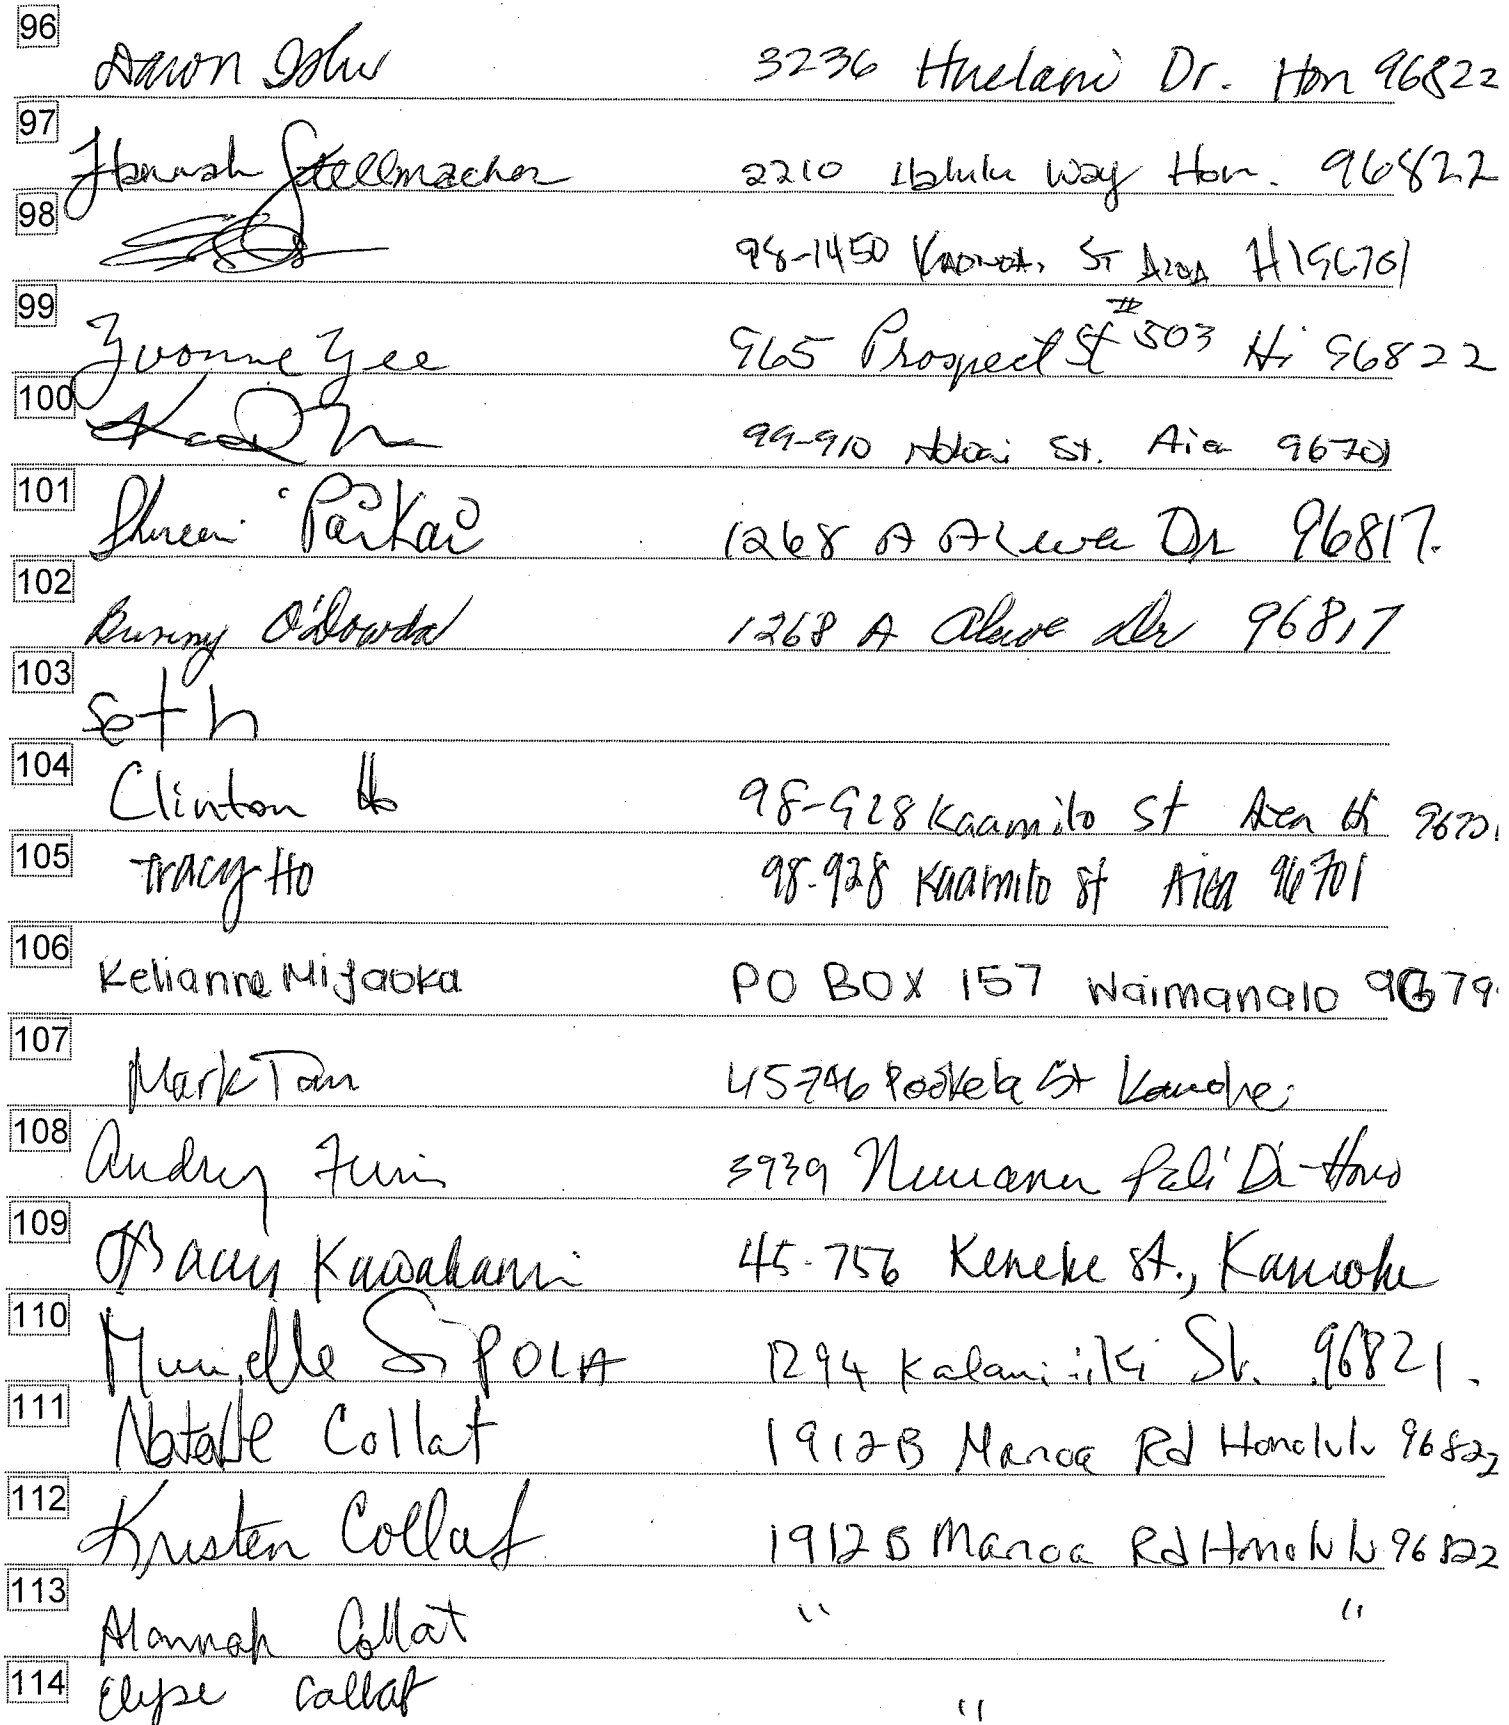 96
Aaron 3236 Huelani Dr. Hon 96822
97
Hannah Stellmacher 2210 Way Hon. 96822
98
98-1450 St Aiea HI 96701
99
Yvonne Yee 965 Prospect St #503 Hi 96822
100
99-910 St. Aiea 96701
101
PaiKai 1268 A Alewa Dr 96817.
102
Bunny O'Dowda 1268 A Alewa Dr 96817
103
seth
104
Clinton Ho 98-928 Kaamilo St Aiea HI 96701
105
Tracy Ho 98-928 Kaamilo St Aiea 96701
106
Kelianne Miyaoka PO BOX 157 Waimanalo 9679
107
Mark Tam 45746 Pookela St Kaneohe
108
Audrey 3939 Nuuanu Pali Dr Hono
109
Kawakami 45-756 Keneke St., Kaneohe
110
Murielle SiPOLA 1294 Kalaniiki St. 96821.
111
Natalie Collat 1912B Manoa Rd Honolulu 96822
112
Kristen Collat 1912B Manoa Rd Honolulu 96822
113
Alannah Collat " "
114
Elyse Collat "